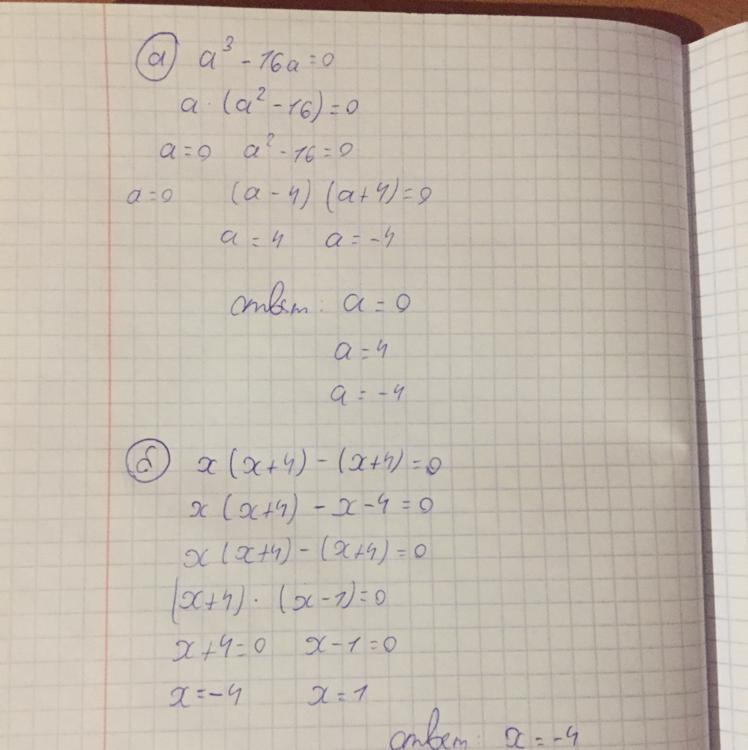 а) a³ - 16a = 0
a · (a² - 16) = 0
a = 0 a² - 16 = 0
a = 0 (a - 4) (a + 4) = 0
a = 4 a = -4
ответ: a = 0
a = 4
a = -4
б) x (x+4) - (x+4) = 0
x (x+4) - x - 4 = 0
x (x+4) - (x+4) = 0
(x+4) · (x - 1) = 0
x + 4 = 0 x - 1 = 0
x = -4 x = 1
ответ: x = -4